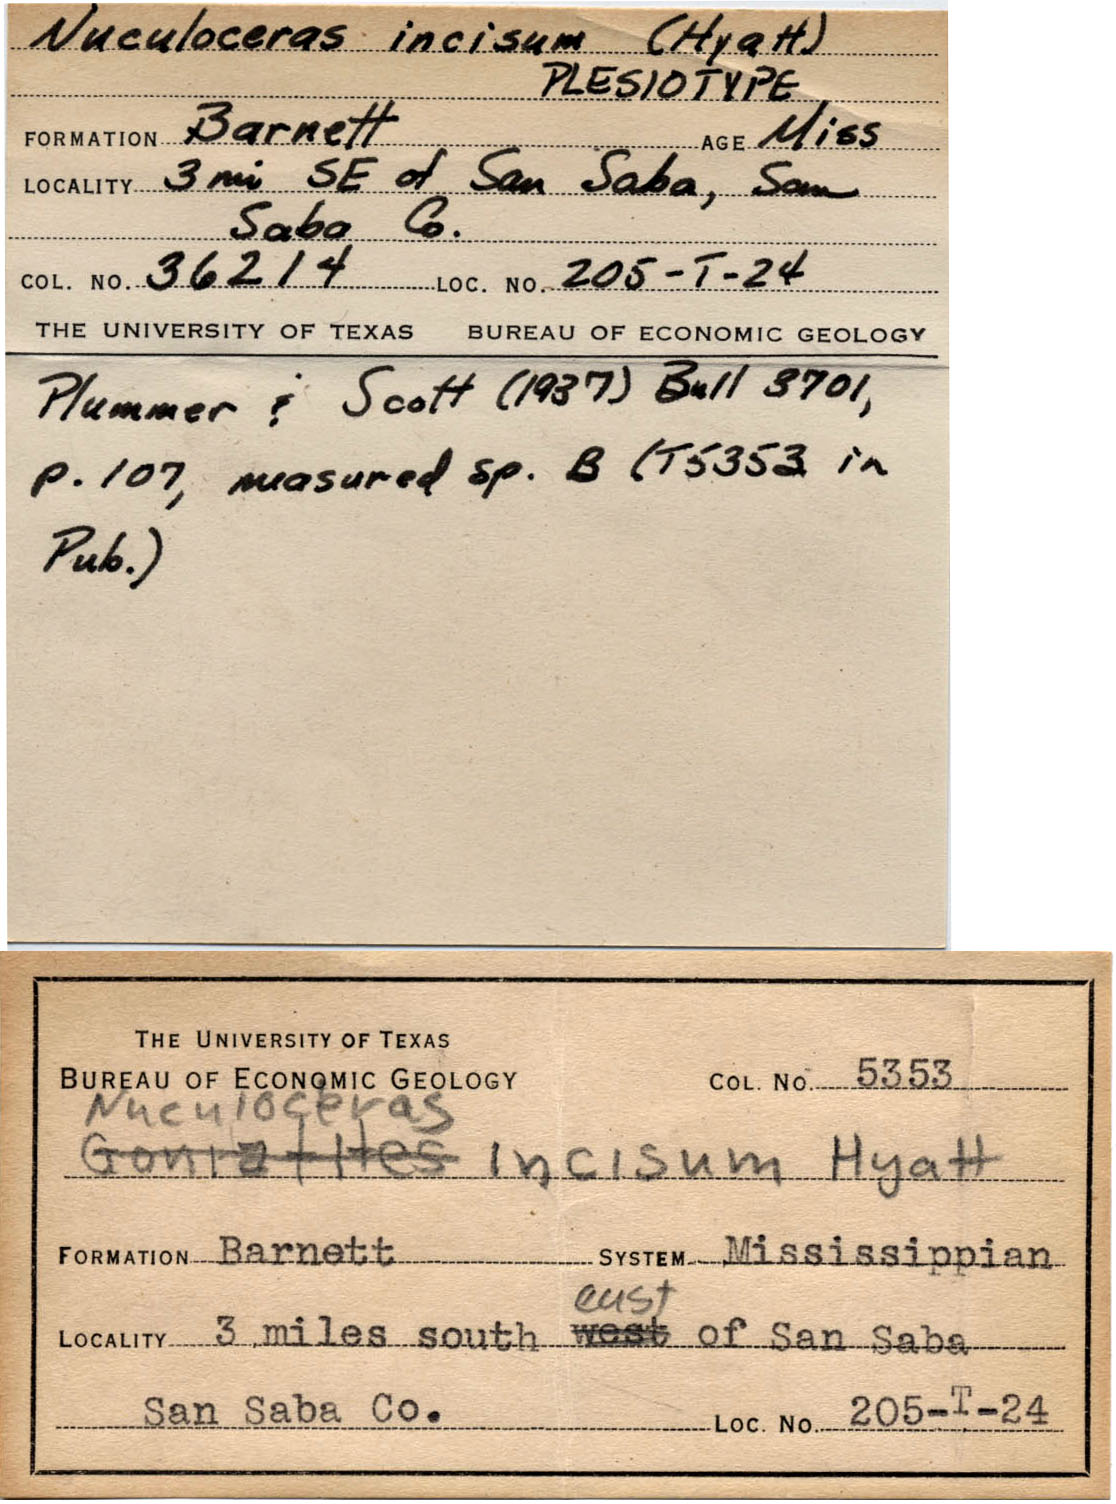 Nuculoceras incisum (Hyatt)
PLESIOTYPE
FORMATION Barnett AGE Miss
LOCALITY 3 mi SE of San Saba, San
Saba Co.
COL. NO. 36214 LOC. NO. 205-T-24
THE UNIVERSITY OF TEXAS BUREAU OF ECONOMIC GEOLOGY
Plummer & Scott (1937) Bull 3701,
p. 107, measured sp. B (T5353 in
Pub.)
THE UNIVERSITY OF TEXAS
BUREAU OF ECONOMIC GEOLOGY COL. NO. 5353
Nuculoceras
Goniatites Incisum Hyatt
FORMATION Barnett SYSTEM Mississippian
east
LOCALITY 3 miles south west of San Saba
San Saba Co. LOC. NO. 205-T-24